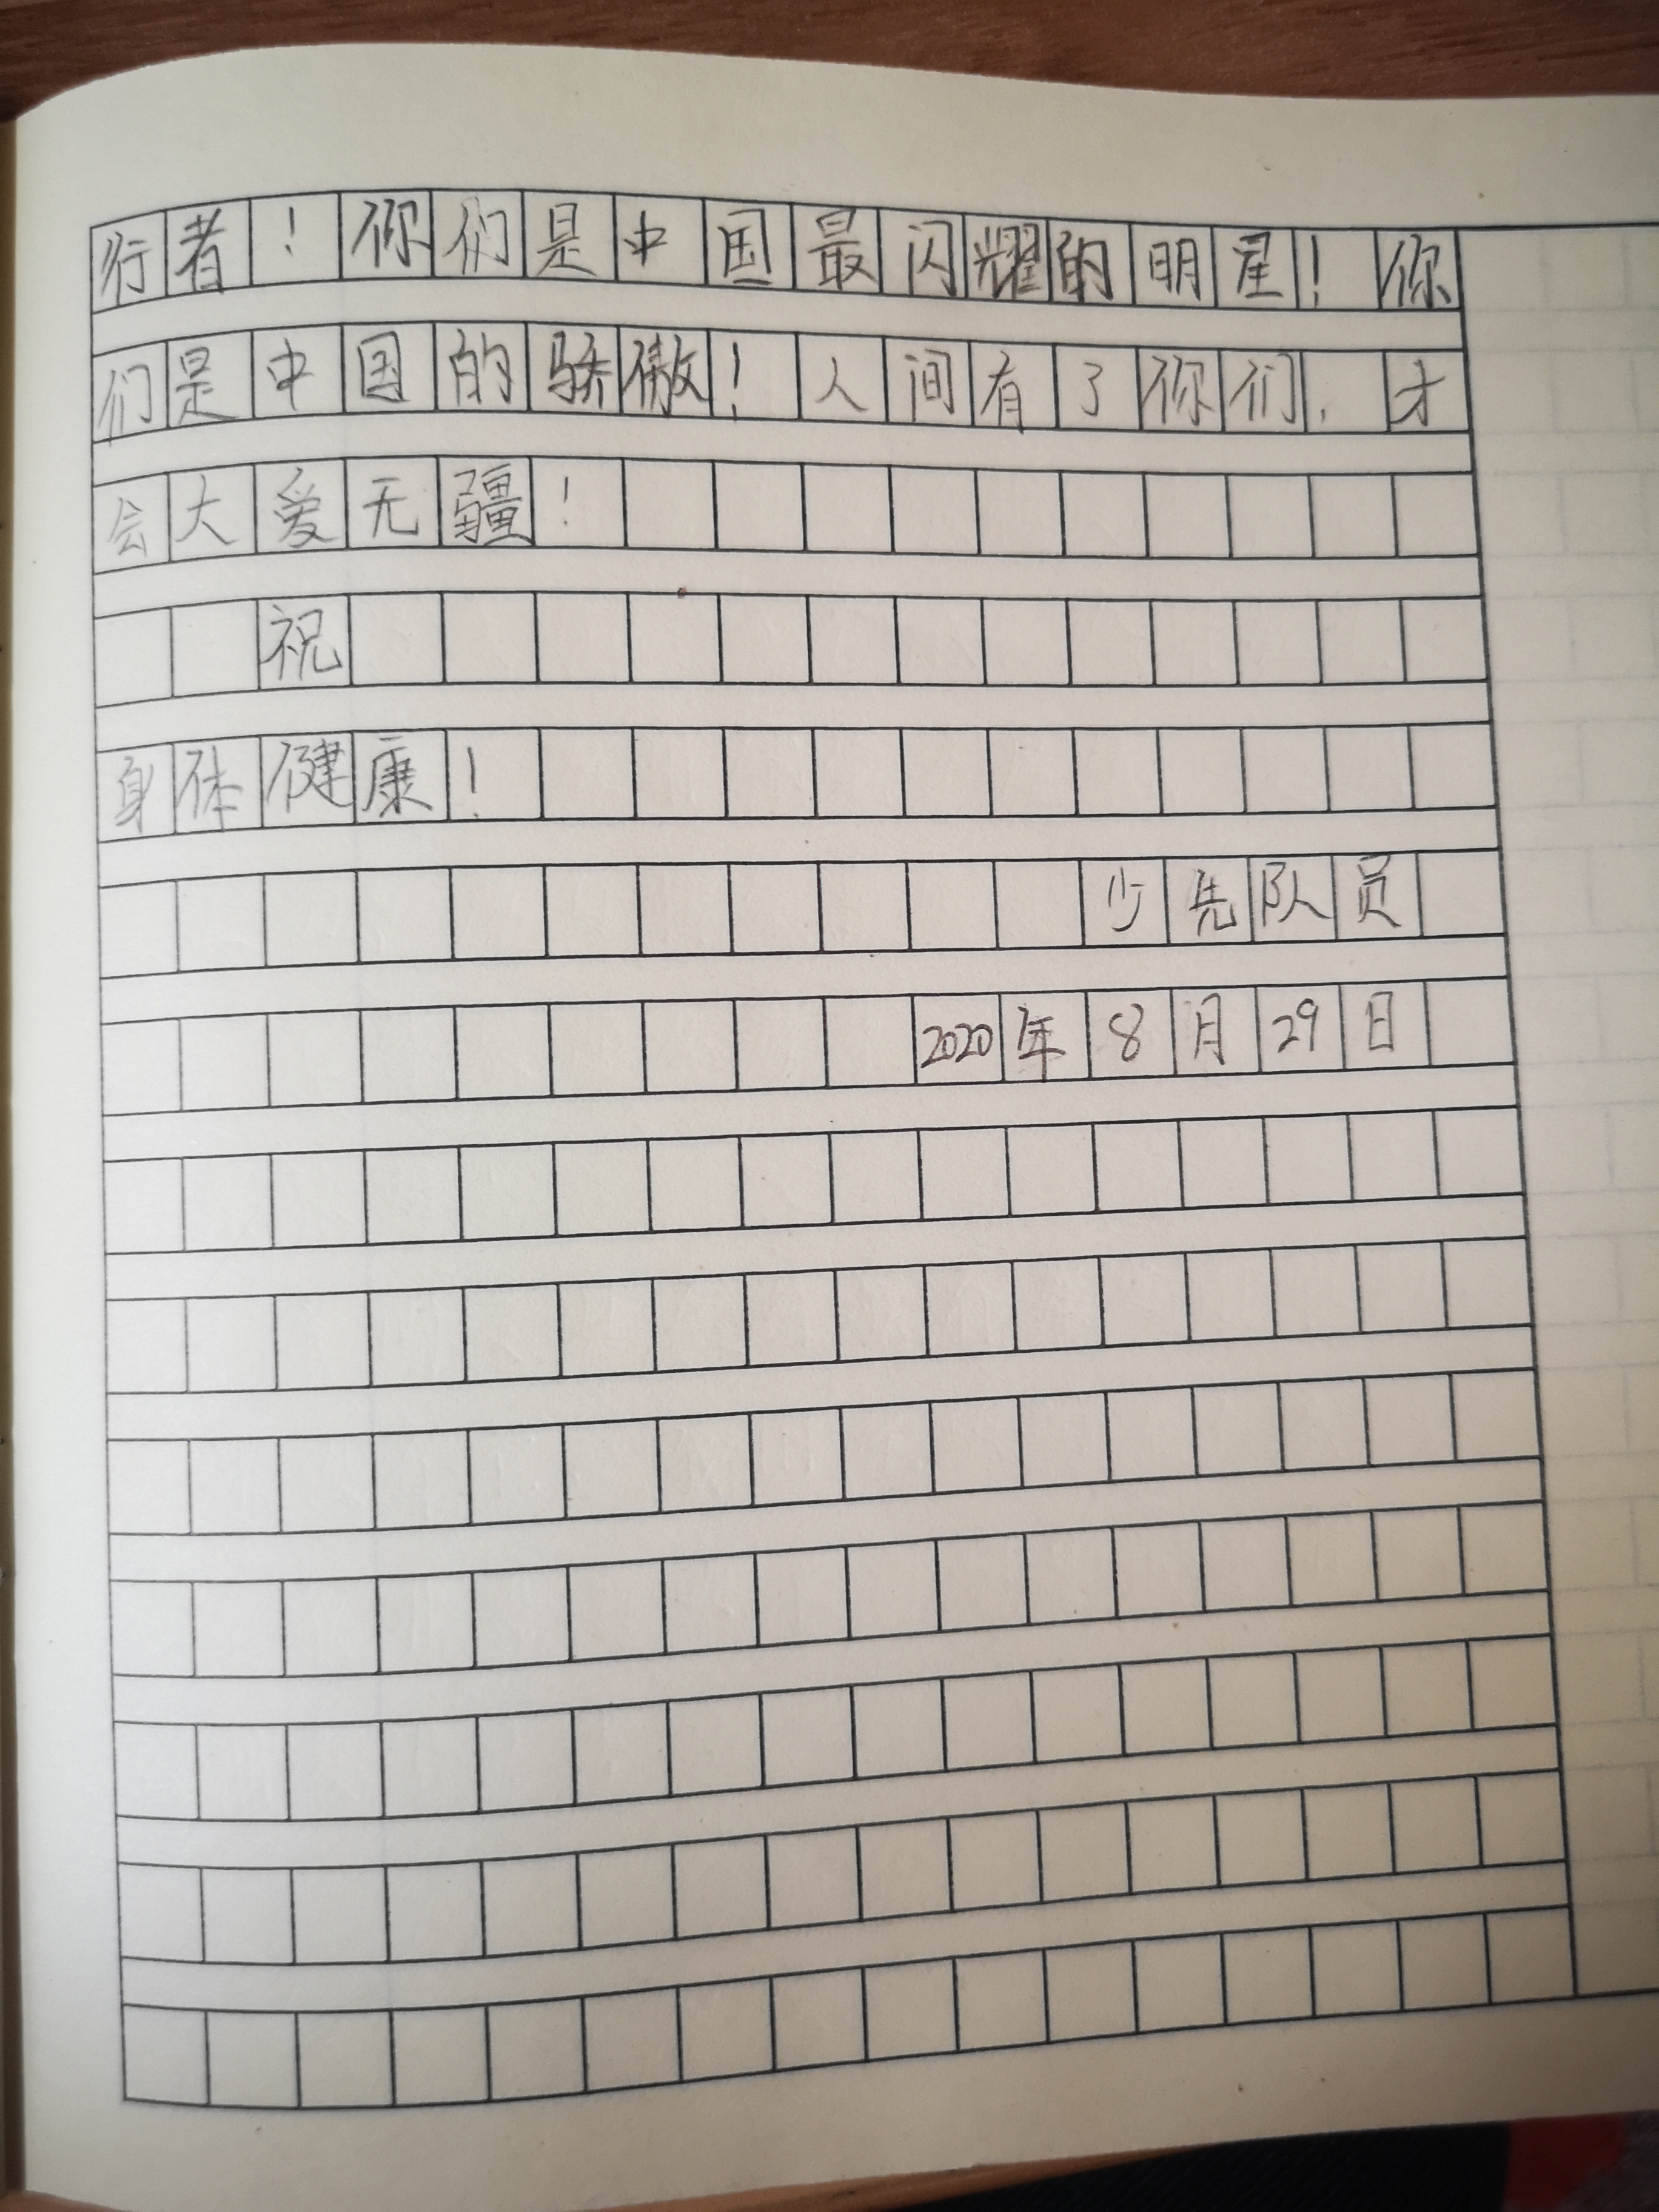 行者！你们是中国最闪耀的明星！你
们是中国的骄傲！人间有了你们，才
会大爱无疆！
祝
身体健康！
少先队员
2020年8月29日